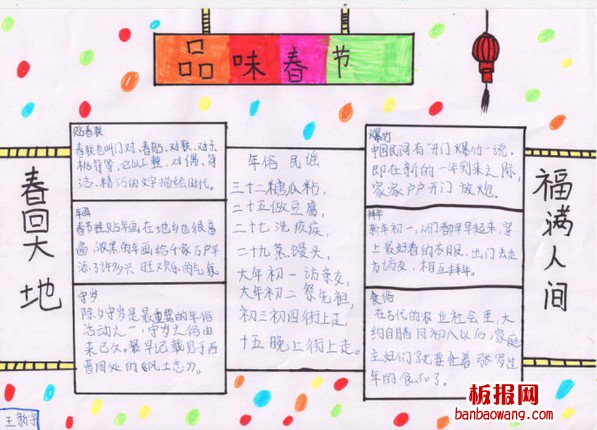 品味春节
春回大地
贴春联
春联也叫门对、春贴、对联、对子
桃符等,它以工整、对偶、简
洁、精巧的文字描绘时代。
年画
春节挂贴年画在城乡也很普
遍,浓黑的年画给千家万户平
添了许多兴旺欢乐的气氛
守岁
除夕守岁是最重要的年俗
活动之一,守岁之俗由
来已久。最早记载见于西
晋周处的《风土志》。
年俗 民谣
二十三糖瓜粘,
二十五做豆腐,
二十七洗疚疾,
二十九蒸馒头,
大年初一访亲友,
大年初二祭先祖,
初三初四街上走,
十五晚上街上走。
爆竹
中国民间有"开门爆竹"一说,
即在新的一年到来之际,
家家户户开门放炮。
拜年
新年初一,人们都早早起来,穿
上最好看的衣服,出门去走
亲访友,相互拜年。
食俗
在古代的农业社会里,大
约自腊月初八以后,家庭
主妇们就要忙着张罗过
年的食品了。
福满人间
王
板报网
banbaowang.com